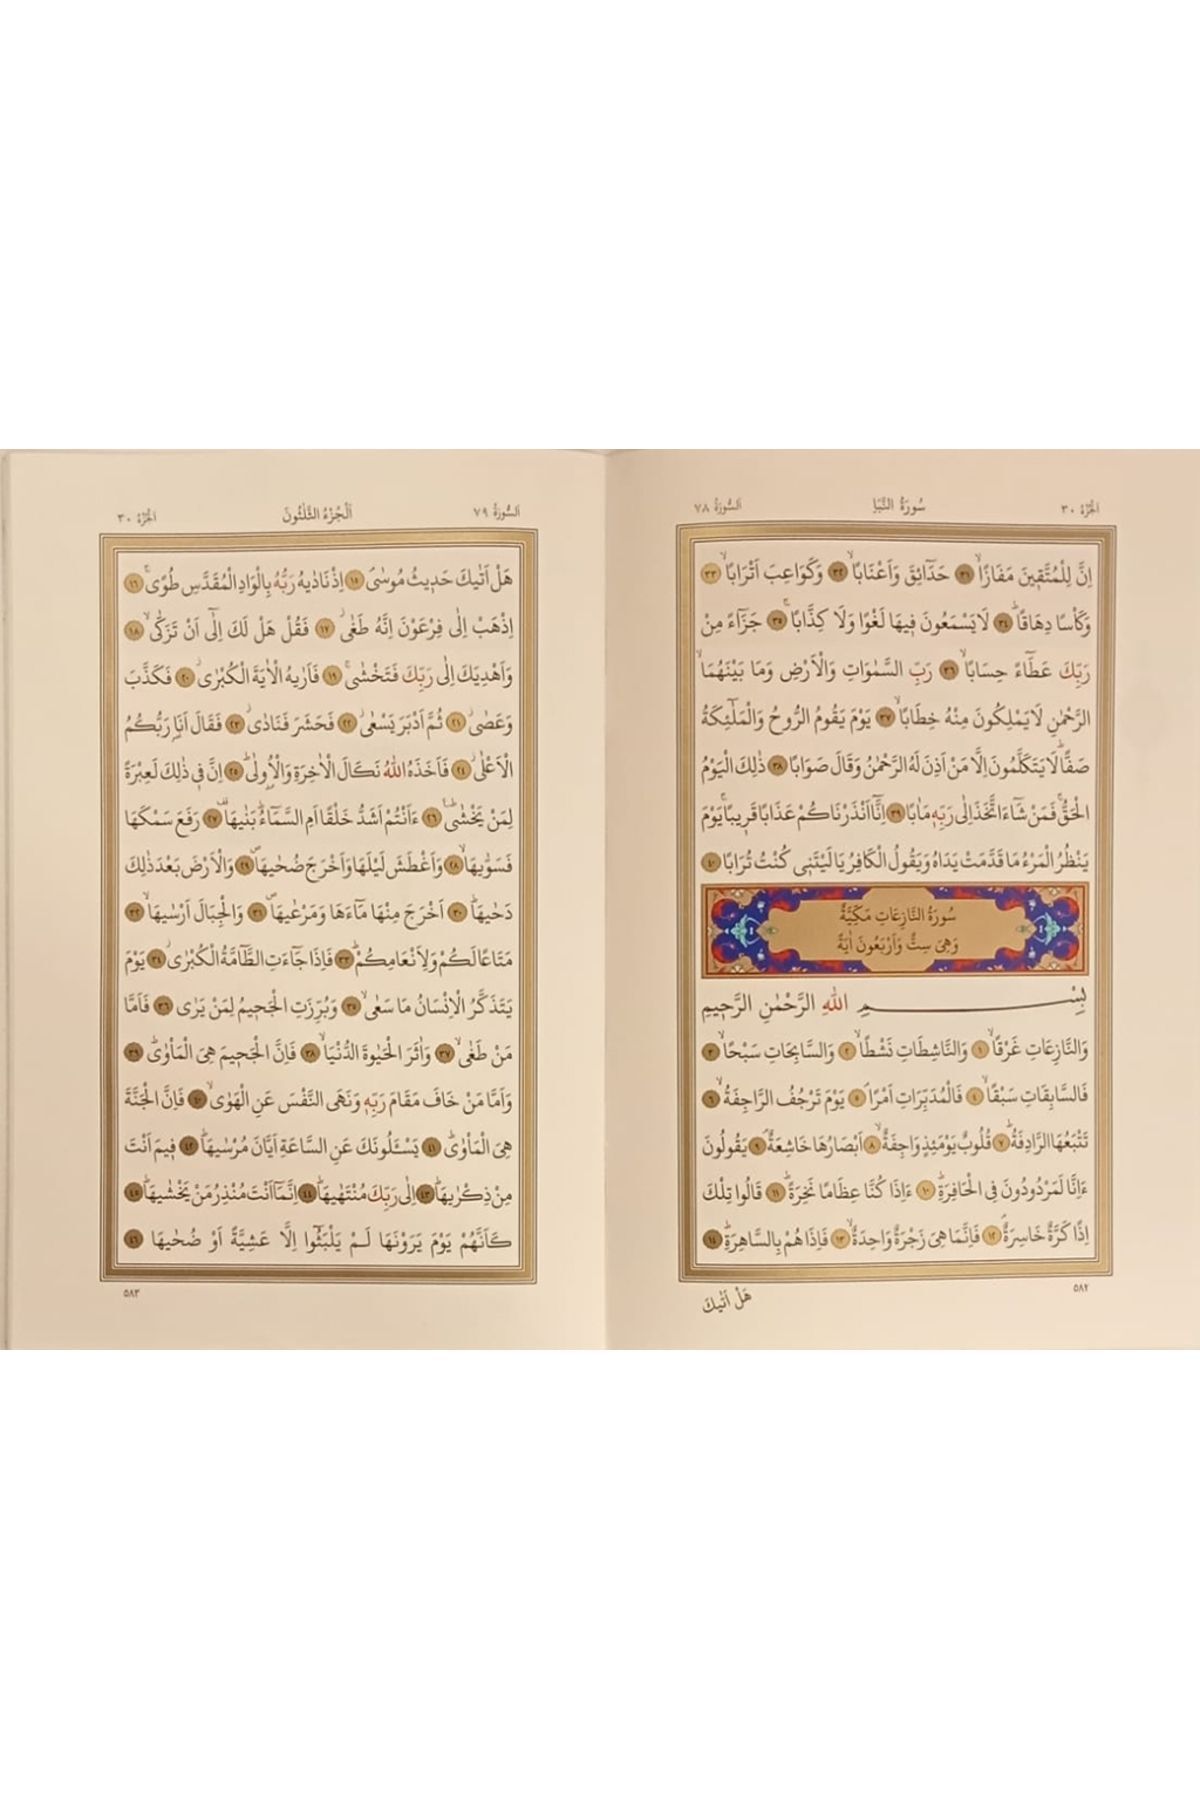 الجزء ٣٠
سُورَةُ النَّبَأِ
اَلسُّورَةُ ٧٨
اِنَّ لِلْمُتَّقٖينَ مَفَازًاۙ ٣١ حَدَٓائِقَ وَاَعْنَابًاۙ ٣٢ وَكَوَاعِبَ اَتْرَابًاۙ ٣٣
وَكَأْسًا دِهَاقًاۜ ٣٤ لَا يَسْمَعُونَ فٖيهَا لَغْوًا وَلَا كِذَّابًاۚ ٣٥ جَزَٓاءً مِنْ
رَبِّكَ عَطَٓاءً حِسَابًاۙ ٣٦ رَبِّ السَّمٰوَاتِ وَالْاَرْضِ وَمَا بَيْنَهُمَا
الرَّحْمٰنِ لَا يَمْلِكُونَ مِنْهُ خِطَابًاۙ ٣٧ يَوْمَ يَقُومُ الرُّوحُ وَالْمَلٰٓئِكَةُ
صَفًّاۜ لَا يَتَكَلَّمُونَ اِلَّا مَنْ اَذِنَ لَهُ الرَّحْمٰنُ وَقَالَ صَوَابًا ٣٨ ذٰلِكَ الْيَوْمُ
الْحَقُّۚ فَمَنْ شَٓاءَ اتَّخَذَ اِلٰى رَبِّهٖ مَاٰبًا ٣٩ اِنَّٓا اَنْذَرْنَاكُمْ عَذَابًا قَرٖيبًاۚ يَوْمَ
يَنْظُرُ الْمَرْءُ مَا قَدَّمَتْ يَدَاهُ وَيَقُولُ الْكَافِرُ يَا لَيْتَنٖى كُنْتُ تُرَابًا ٤٠
سُورَةُ النَّازِعَاتِ مَكِّيَّةٌ
وَهِىَ سِتٌّ وَاَرْبَعُونَ اٰيَةً
بِسْمِ اللّٰهِ الرَّحْمٰنِ الرَّحٖيمِ
وَالنَّازِعَاتِ غَرْقًاۙ ١ وَالنَّاشِطَاتِ نَشْطًاۙ ٢ وَالسَّابِحَاتِ سَبْحًاۙ ٣
فَالسَّابِقَاتِ سَبْقًاۙ ٤ فَالْمُدَبِّرَاتِ اَمْرًاۢ ٥ يَوْمَ تَرْجُفُ الرَّاجِفَةُۙ ٦
تَتْبَعُهَا الرَّادِفَةُۜ ٧ قُلُوبٌ يَوْمَئِذٍ وَاجِفَةٌۙ ٨ اَبْصَارُهَا خَاشِعَةٌۢ ٩ يَقُولُونَ
ءَاِنَّا لَمَرْدُودُونَ فِى الْحَافِرَةِۜ ١٠ ءَاِذَا كُنَّا عِظَامًا نَخِرَةًۜ ١١ قَالُوا تِلْكَ
اِذًا كَرَّةٌ خَاسِرَةٌۢ ١٢ فَاِنَّمَا هِىَ زَجْرَةٌ وَاحِدَةٌۙ ١٣ فَاِذَا هُمْ بِالسَّاهِرَةِۜ ١٤
٥٨٢
هَلْ اَتٰيكَ
اَلسُّورَةُ ٧٩
اَلْجُزْءُ الثَّلٰثُونَ
الجزء ٣٠
هَلْ اَتٰيكَ حَدٖيثُ مُوسٰىۢ ١٥ اِذْ نَادٰيهُ رَبُّهُ بِالْوَادِ الْمُقَدَّسِ طُوًىۚ ١٦
اِذْهَبْ اِلٰى فِرْعَوْنَ اِنَّهُ طَغٰىؗ ١٧ فَقُلْ هَلْ لَكَ اِلٰٓى اَنْ تَزَكّٰىۙ ١٨
وَاَهْدِيَكَ اِلٰى رَبِّكَ فَتَخْشٰىۚ ١٩ فَاَرٰيهُ الْاٰيَةَ الْكُبْرٰىؗ ٢٠ فَكَذَّبَ
وَعَصٰىؗ ٢١ ثُمَّ اَدْبَرَ يَسْعٰىؗ ٢٢ فَحَشَرَ فَنَادٰىؗ ٢٣ فَقَالَ اَنَا۬ رَبُّكُمُ
الْاَعْلٰىؗ ٢٤ فَاَخَذَهُ اللّٰهُ نَكَالَ الْاٰخِرَةِ وَالْاُو۫لٰىۜ ٢٥ اِنَّ فٖى ذٰلِكَ لَعِبْرَةً
لِمَنْ يَخْشٰىۜ ٢٦ ءَاَنْتُمْ اَشَدُّ خَلْقًا اَمِ السَّمَٓاءُۜ بَنٰيهَا۠ ٢٧ رَفَعَ سَمْكَهَا
فَسَوّٰيهَاۙ ٢٨ وَاَغْطَشَ لَيْلَهَا وَاَخْرَجَ ضُحٰيهَاۖ ٢٩ وَالْاَرْضَ بَعْدَ ذٰلِكَ
دَحٰيهَاۜ ٣٠ اَخْرَجَ مِنْهَا مَٓاءَهَا وَمَرْعٰيهَاۖ ٣١ وَالْجِبَالَ اَرْسٰيهَاۙ ٣٢
مَتَاعًا لَكُمْ وَلِاَنْعَامِكُمْۜ ٣٣ فَاِذَا جَٓاءَتِ الطَّٓامَّةُ الْكُبْرٰىؗ ٣٤ يَوْمَ
يَتَذَكَّرُ الْاِنْسَانُ مَا سَعٰىۙ ٣٥ وَبُرِّزَتِ الْجَحٖيمُ لِمَنْ يَرٰى ٣٦ فَاَمَّا
مَنْ طَغٰىۙ ٣٧ وَاٰثَرَ الْحَيٰوةَ الدُّنْيَاۙ ٣٨ فَاِنَّ الْجَحٖيمَ هِىَ الْمَأْوٰىۜ ٣٩
وَاَمَّا مَنْ خَافَ مَقَامَ رَبِّهٖ وَنَهَى النَّفْسَ عَنِ الْهَوٰىۙ ٤٠ فَاِنَّ الْجَنَّةَ
هِىَ الْمَأْوٰىۜ ٤١ يَسْـَٔلُونَكَ عَنِ السَّاعَةِ اَيَّانَ مُرْسٰيهَاۜ ٤٢ فٖيمَ اَنْتَ
مِنْ ذِكْرٰيهَاۜ ٤٣ اِلٰى رَبِّكَ مُنْتَهٰيهَاۜ ٤٤ اِنَّمَٓا اَنْتَ مُنْذِرُ مَنْ يَخْشٰيهَاۜ ٤٥
كَاَنَّهُمْ يَوْمَ يَرَوْنَهَا لَمْ يَلْبَثُٓوا اِلَّا عَشِيَّةً اَوْ ضُحٰيهَا ٤٦
٥٨٣